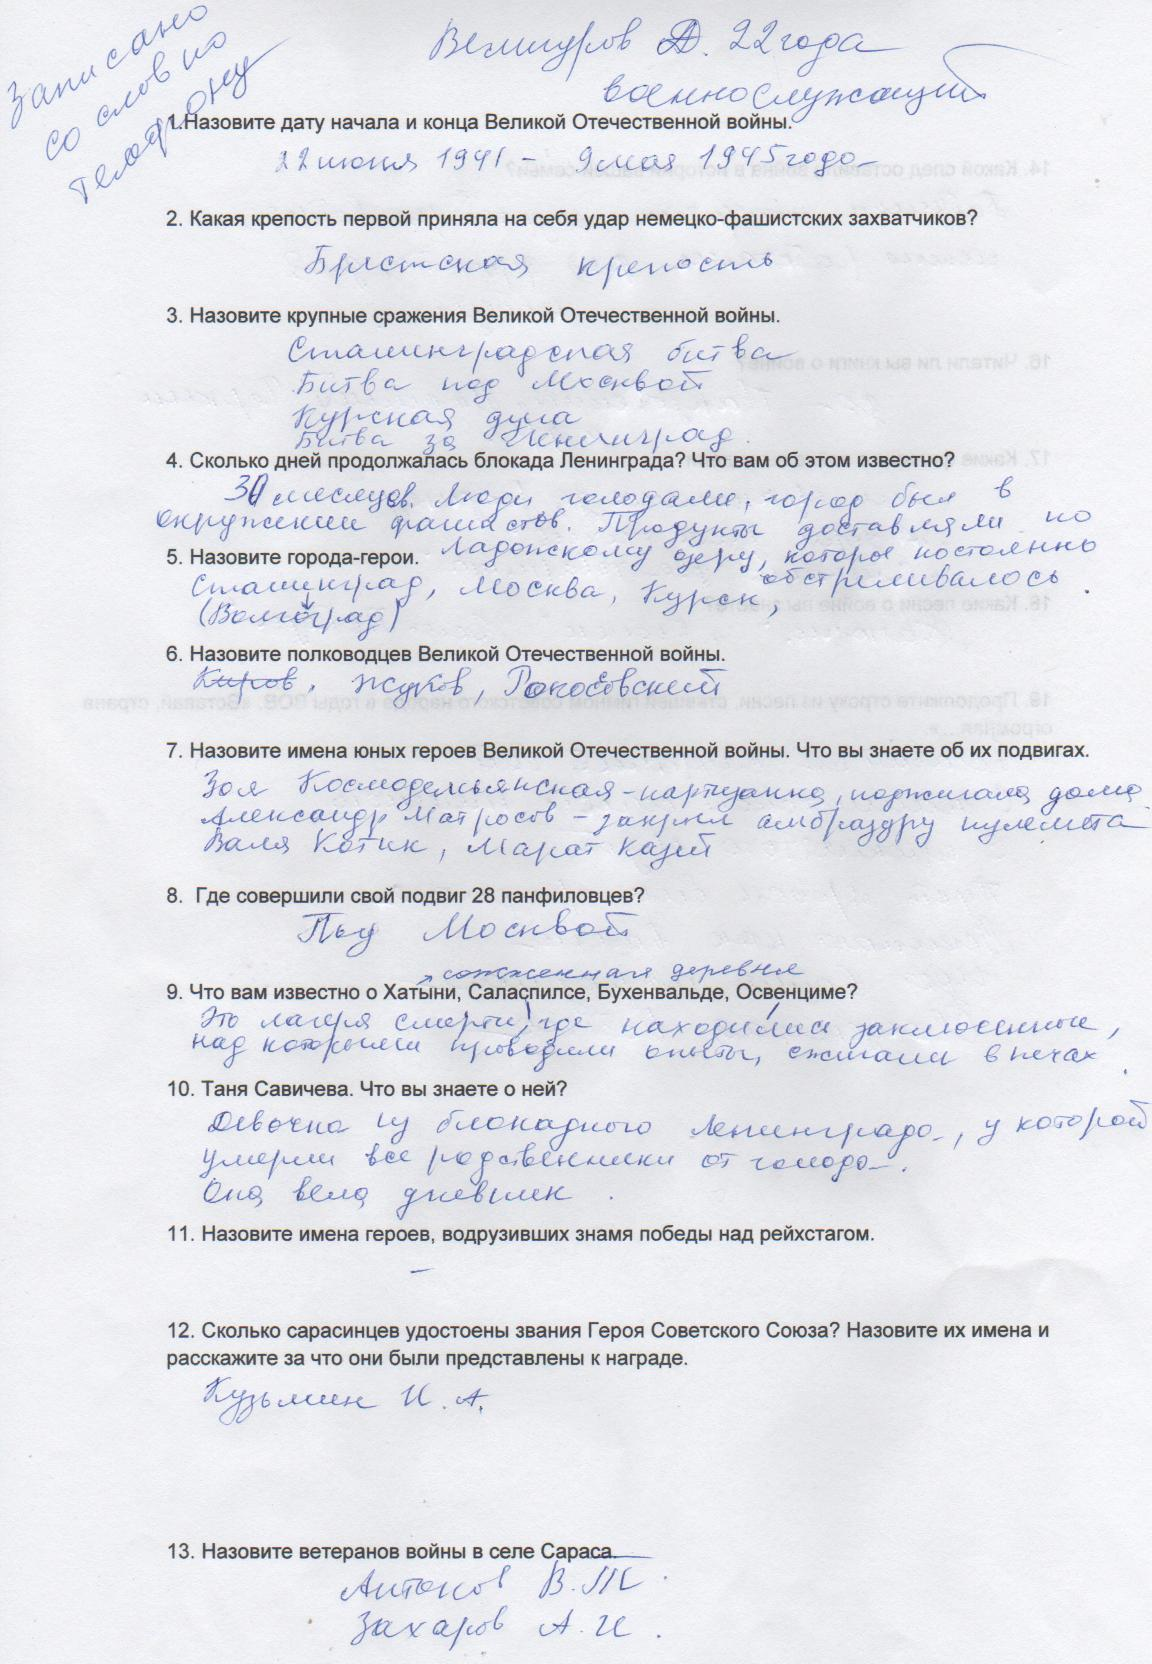 Записано
со слов по
телефону
Велигуров Д. 22 года
военнослужащий
1.Назовите дату начала и конца Великой Отечественной войны.
22 июня 1941 - 9 мая 1945 года
2. Какая крепость первой приняла на себя удар немецко-фашистских захватчиков?
Брестская крепость
3. Назовите крупные сражения Великой Отечественной войны.
Сталинградская битва
Битва под Москвой
Курская дуга
Битва за Ленинград.
4. Сколько дней продолжалась блокада Ленинграда? Что вам об этом известно?
30 месяцев. Люди голодали, город был в
окружении фашистов. Продукты доставляли по
Ладожскому озеру, которое постоянно
обстреливалось.
5. Назовите города-герои.
Сталинград, Москва, Курск,
(Волгоград)
6. Назовите полководцев Великой Отечественной войны.
Киров, Жуков, Рокоссовский
7. Назовите имена юных героев Великой Отечественной войны. Что вы знаете об их подвигах.
Зоя Космодемьянская - партизанка, поджигала дома
Александр Матросов - закрыл амбразуру пулемета
Валя Котик, Марат Казей
8. Где совершили свой подвиг 28 панфиловцев?
Под Москвой
сожженная деревня
9. Что вам известно о Хатыни, Саласпилсе, Бухенвальде, Освенциме?
Это лагеря смерти, где находились заключенные,
над которыми проводили опыты, сжигали в печах.
10. Таня Савичева. Что вы знаете о ней?
Девочка из блокадного Ленинграда, у которой
умерли все родственники от голода.
Она вела дневник.
11. Назовите имена героев, водрузивших знамя победы над рейхстагом.
–
12. Сколько сарасинцев удостоены звания Героя Советского Союза? Назовите их имена и
расскажите за что они были представлены к награде.
Кузьмин И. А.
13. Назовите ветеранов войны в селе Сараса.
Антонов В. Т.
Захаров А. И.